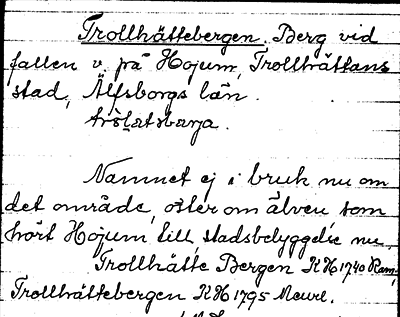 Trollhättebergen. Berg vid
fallen v. på Hojum, Trollhättans
stad, Älfsborgs län.
Namnet ej i bruk nu om
det område, öster om älven som
hört Hojum till, stadsbebyggelse nu,
Trollhätte Bergen RH 1740 Ram,
Trollhättebergen RH 1795 Meurl.